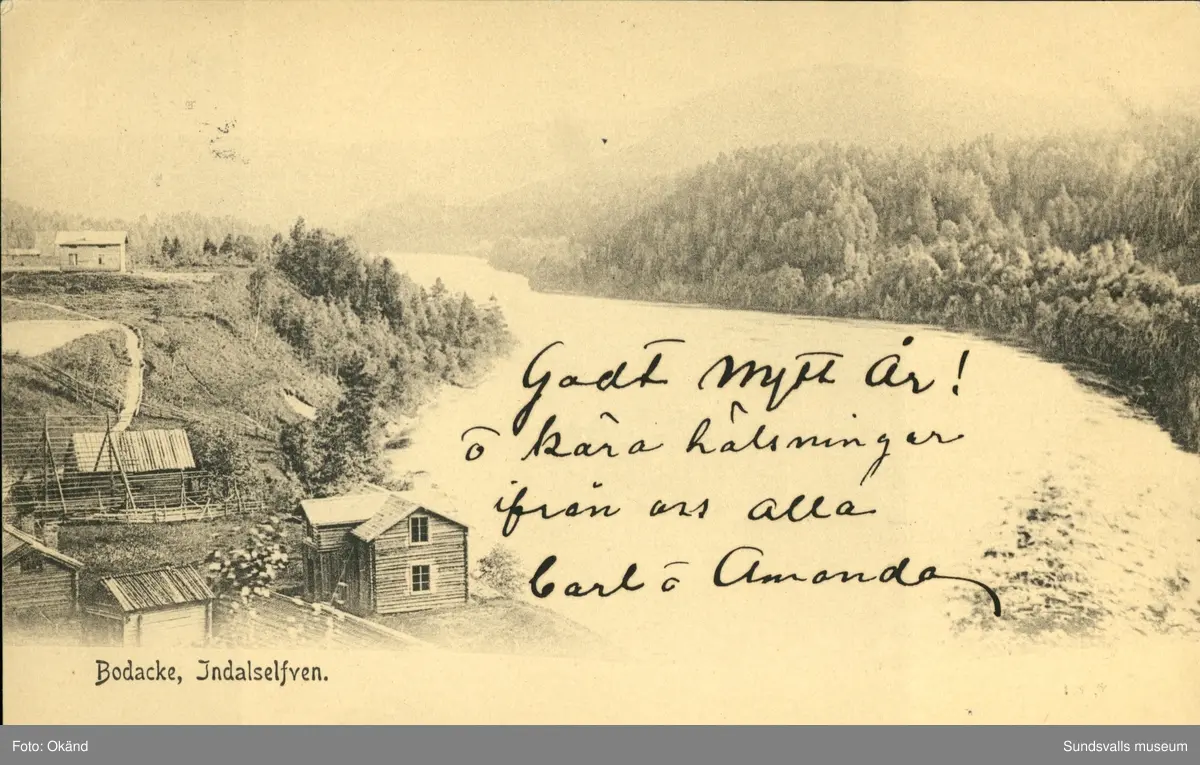 Godt Nytt År!
ō kära hälsningar
ifrån oss alla
Carl ō Amanda
Bodacke, Indalselfven.
Foto: Okänd
Sundsvalls museum